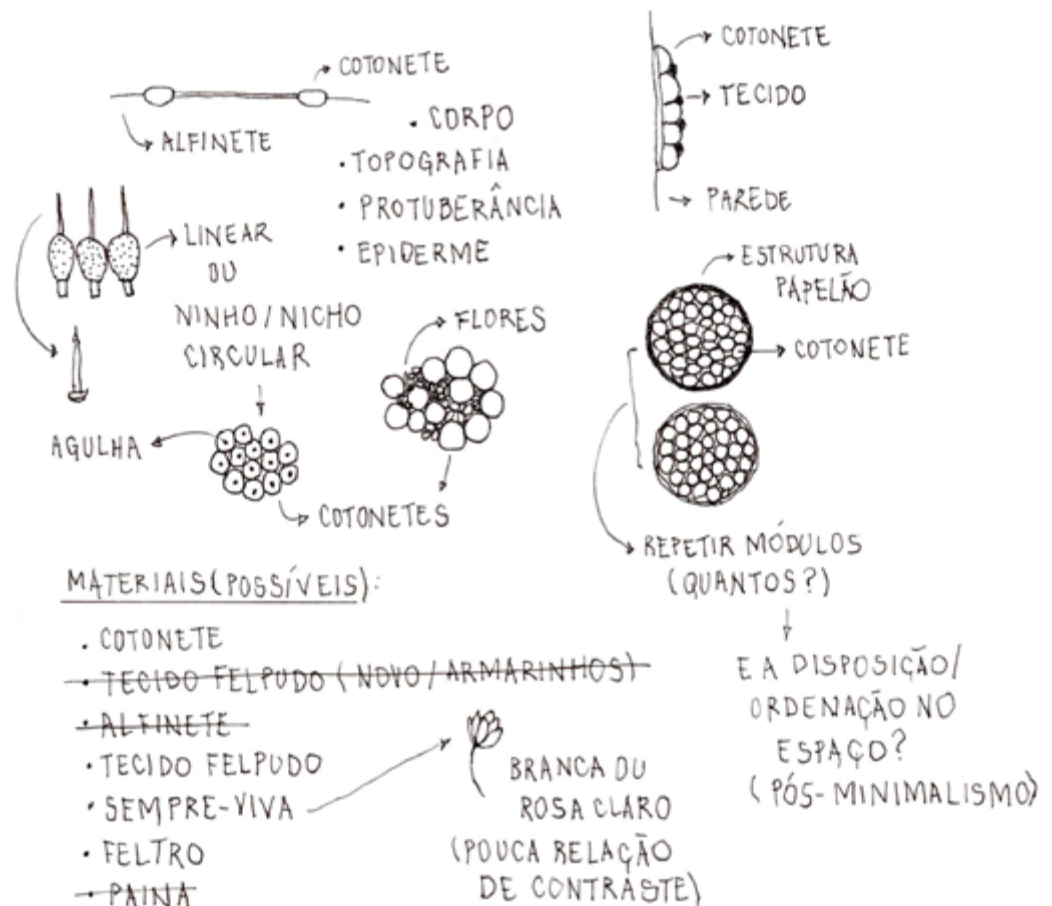 COTONETE
ALFINETE
• CORPO
• TOPOGRAFIA
• PROTUBERÂNCIA
• EPIDERME
LINEAR
OU
NINHO/NICHO
CIRCULAR
AGULHA
FLORES
COTONETES
COTONETE
TECIDO
PAREDE
ESTRUTURA
PAPELÃO
COTONETE
REPETIR MÓDULOS
(QUANTOS?)
E A DISPOSIÇÃO/
ORDENAÇÃO NO
ESPAÇO?
(PÓS-MINIMALISMO)
MATERIAIS (POSSÍVEIS):
• COTONETE
• TECIDO FELPUDO (NOVO/ARMARINHOS)
• ALFINETE
• TECIDO FELPUDO
• SEMPRE-VIVA
• FELTRO
• PAINA
BRANCA OU
ROSA CLARO
(POUCA RELAÇÃO
DE CONTRASTE)